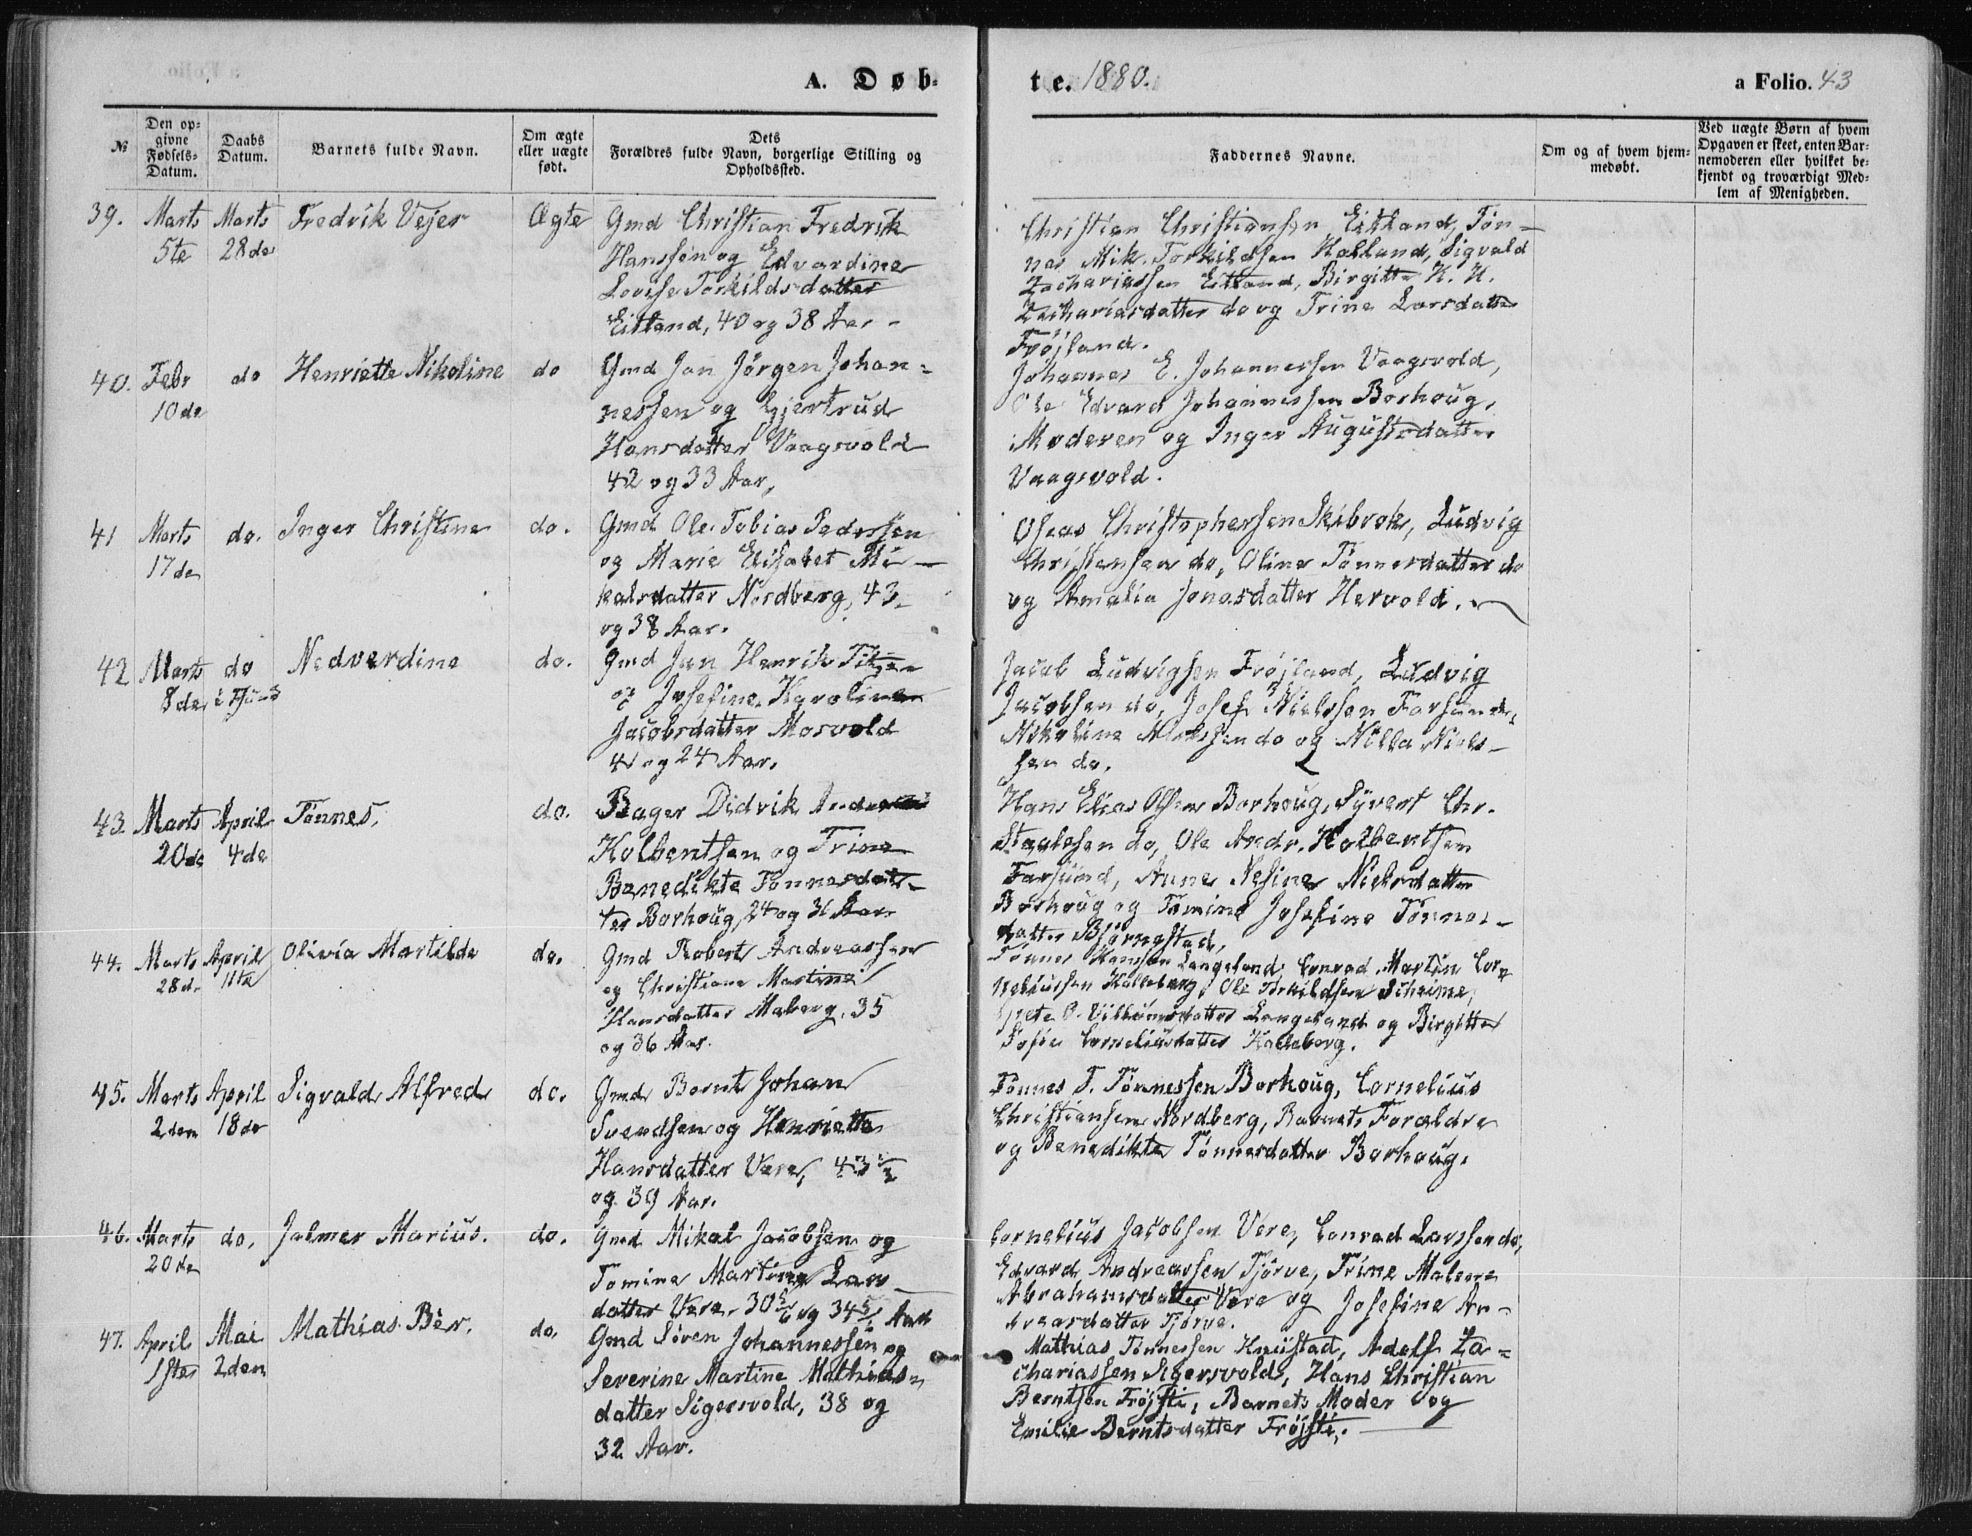 A. Døb-
te. 1880.
a Folio. 43
№
Den op-
givne
Fødsels-
Datum.
Daabs
Datum.
Barnets fulde Navn.
Om ægte
eller uægte
født.
Dets
Forældres fulde Navn, borgerlige Stilling og
Opholdssted.
Faddernes Navne.
Om og af hvem hjem-
medøbt.
Ved uægte Børn af hvem
Opgaven er skeet, enten Bar-
nemoderen eller hvilket be-
kjendt og troværdigt Med-
lem af Menigheden.
39. Marts Marts Fredrik Vejer Ægte Gmd Christian Fredrik
5te 28de Hanssøn og Edvardine
Lovise Torkildsdatter
Eitland, 40 og 38 Aar -
Christian Christiansen Eitland, Tøn-
nes Mik. Torkildsen Hatland, Sigvald
Zachariassen Eitland, Birgitte K. K.
Zachariasdatter do og Trine Larsdatter
Frøjland.
40. Febr do Henriette Nikoline do Gmd Jan Jørgen Johan-
10de nessen og Gjertrud
Hansdatter Vaagsvold
42 og 33 Aar,
Johannes E. Johannessen Vaagsvold,
Ole Edvard Johannessen Borhoug,
Moderen og Inger Augustsdatter
Vaagsvold.
41 Marts do. Inger Christine do. Gmd Ole Tobias Pedersen
17de og Marie Elisabet Mi-
kalsdatter Nordberg, 43
og 38 Aar.
Oseas Christophersen Skibrok, Ludvig
Christensen do, Oline Tønnesdatter do
og Amalia Jonasdatter Hervold.
42 Marts do Nedverdine do. Gmd Jan Henrik
8de og Josefine Karoline
Jacobsdatter Mosvold
41 og 24 Aar.
Jacob Ludvigsen Frøjland, Ludvig
Jacobsen do, Josef Nielssen Farsund,
Nikoline do og Nilla Niels-
sen do.
43. Marts April Tønnes. do. Bager Didvik
20de 4de Kolbentsen og Trine
Benedikte Tønnesdat-
ter Borhoug, 24 og 36 Aar
Hans Elias Olsen Borhoug, Syvert Chr.
Staalesen do, Ole Andr. Kolbentsen
Farsund, Anne Nielsdatter
Borhoug og Tomine Josefine Tønnes-
datter Bjørnestad.
44. Marts April Olivia Martilde do. Gmd Robert Andreassen
28d. 11te og Christiane Martine
Hansdatter Maberg, 35
og 36 Aar.
Tønnes Hanssen Langeland, Conrad Martin Cor-
neliussen Kalleberg, Ole Torkildsen
Langeland og Birgitte
Sofie Corneliusdatter Kalleberg.
45. Marts April Sigvald Alfred do. Gmd Bernt Johan
2den 18de Svendsen og Henriette
Hansdatter Vere, 43 ½
og 39 Aar.
Tønnes T. Tønnessen Borhoug, Cornelius
Christiansen Nordberg, Barnets Forældre
og Benedikte Tønnesdatter Borhoug.
46. Marts do. Jalmer Marius. do. Gmd Mikal Jacobsen og
20de Tomine Martine Lars-
datter Vere, 30 5/6 og 34 5/6 Aar
Cornelius Jacobsen Vere, Conrad Larssen do,
Edvard Andreassen Tjørve, Trine Malene
Abrahamsdatter Vere og Josefine An-
dreasdatter Tjørve.
47. April Mai Mathias Bèr. do. Gmd Søren Johannessen og
1ste 2den Severine Martine Mathias-
datter Sigersvold, 38 og
32 Aar.
Mathias Tønnessen Knivstad, Adolf Za-
chariassen Sigersvold, Hans Christian
Berntsen Frøjsti, Barnets Moder og
Emilie Berntsdatter Frøjsti.